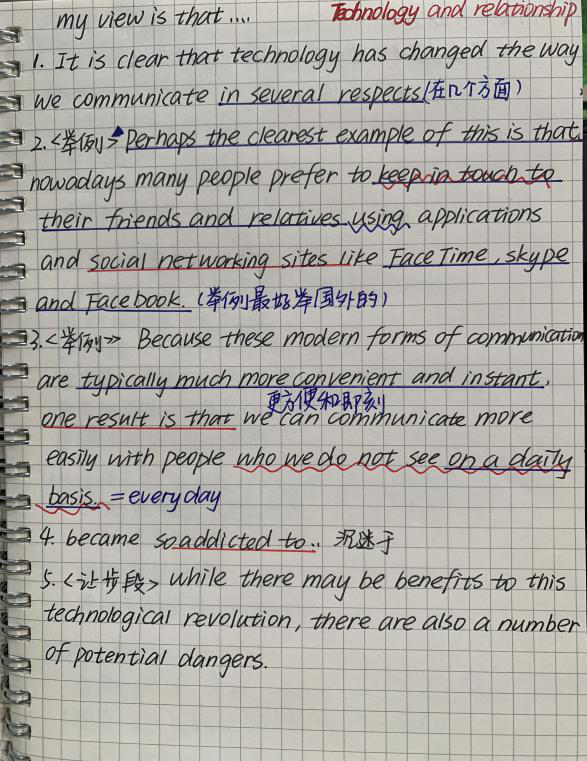 my view is that .... Technology and relationship
1. It is clear that technology has changed the way
we communicate in several respects (在几个方面)
2.<举例> Perhaps the clearest example of this is that
nowadays many people prefer to keep in touch to
their friends and relatives using applications
and social networking sites like FaceTime, skype
and Facebook. (举例最好举国外的)
3.<举例> Because these modern forms of communication
are typically much more convenient and instant,
更方便和即刻
one result is that we can communicate more
easily with people who we do not see on a daily
basis. = everyday
4. became so addicted to.. 沉迷于
5.<让步段> while there may be benefits to this
technological revolution, there are also a number
of potential dangers.